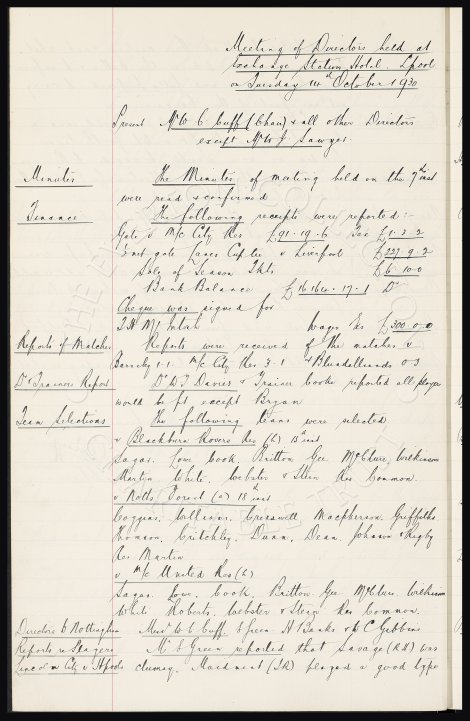 Meeting of Directors held at
Exchange Station Hotel, Lpool
on Tuesday 14th October 1930
Present Mr W C Cuff (Chair) & all other Directors
except Mr W J Sawyer
Minutes The Minutes of meeting held on the 7th inst
were read & confirmed
Finance The following receipts were reported:-
Gate v M/c City Res £91-19-6 Tax £1-3-2
½ net gate Lancs Cup tie v Liverpool £227-9-2
Sale of Season Tkts £6-10-0
Bank Balance £16164-17-1 Dr
Cheque was signed for
T H McIntosh Wages &c £300-0-0
Reports of Matches Reports were received of the matches v
Barnsley 1-1 M/c City Res 3-1 & Blundellsands 0-3
Dr & Trainers Report Dr D T Davies & Trainer Cooke reported all players
would be fit except Bryan
Team Selections The following teams were selected
v Blackburn Rovers Res (h) 15 inst
Sagar, Lowe Cook Britton Gee McClure, Wilkinson
Martin White, Webster & Stein Res Common.
v Notts Forest (a) 18th inst
Coggins, Williams, Cresswell Macpherson, Griffiths
Thomson, Critchley, Dunn, Dean, Johnson & Rigby
Res Martin
v M/c United Res (h)
Sagar, Lowe, Cook, Britton Gee McClure, Wilkinson
White Roberts, Webster & Stein Res Common.
Directors to Nottingham Messrs W C Cuff, A Green H Banks & W C Gibbins
Reports re Players Mr A Green reported that Savage (RH) was
Lincoln City v Stpools clumsy. Maidment (IR) played a good type